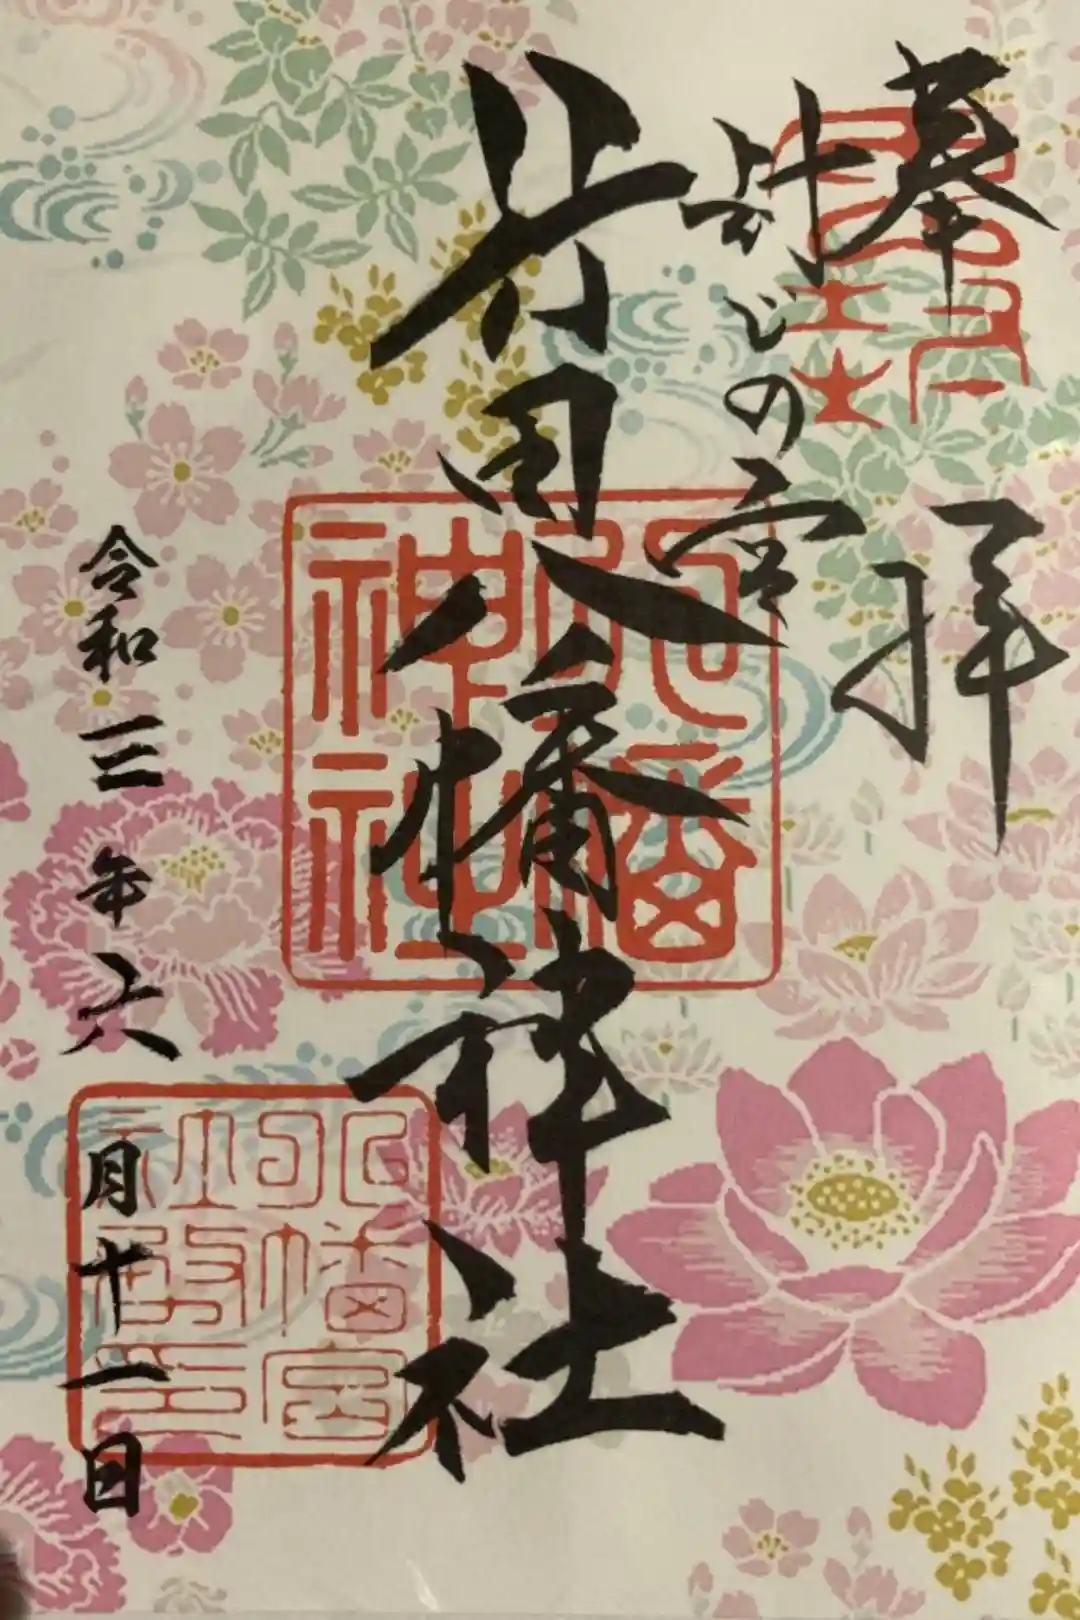 奉拝
の宮
田八幡神社
八幡
神社
八幡宮
社務印
令和三年六月十一日